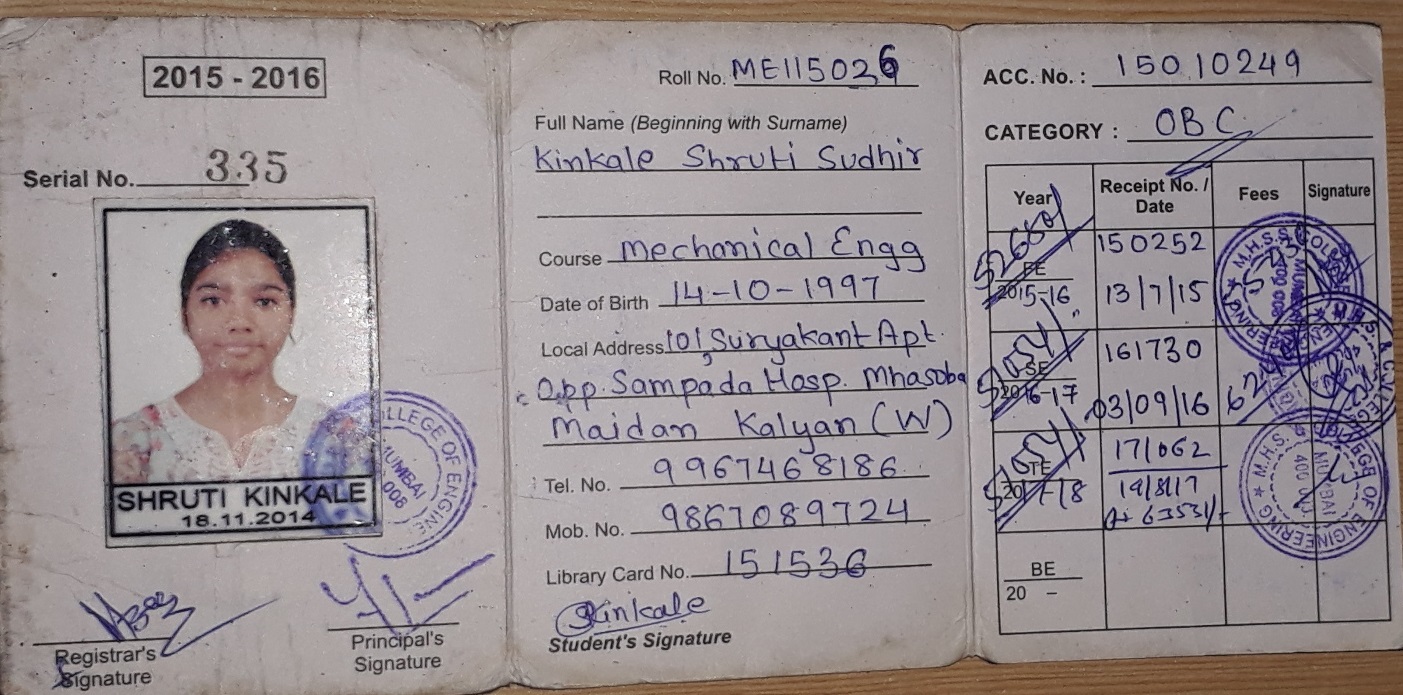 2015 - 2016
Serial No. 335
SHRUTI KINKALE
18.11.2014
COLLEGE OF ENGINE
MUMBAI
008
Registrar's
Signature
Principal's
Signature
Roll No. ME115026
Full Name (Beginning with Surname)
Kinkale Shruti Sudhir
Course Mechanical Engg
Date of Birth 14-10-1997
Local Address 101, Suryakant Apt.
Opp. Sampada Hosp. Mhasoba
Maidan Kalyan (W)
Tel. No. 9967468186
Mob. No. 9867089724
Library Card No. 151536
Skinkale
Student's Signature
ACC. No. : 15010249
CATEGORY : OBC
Year Receipt No. / Date Fees Signature
FE 150252
2015-16 13/7/15
SE 161730
2016-17 03/09/16
TE 171062
2017-18 19/8/17
63531/-
M.H.S.
COLLEGE OF ENGINEERING
MUMBAI
BE
20 –